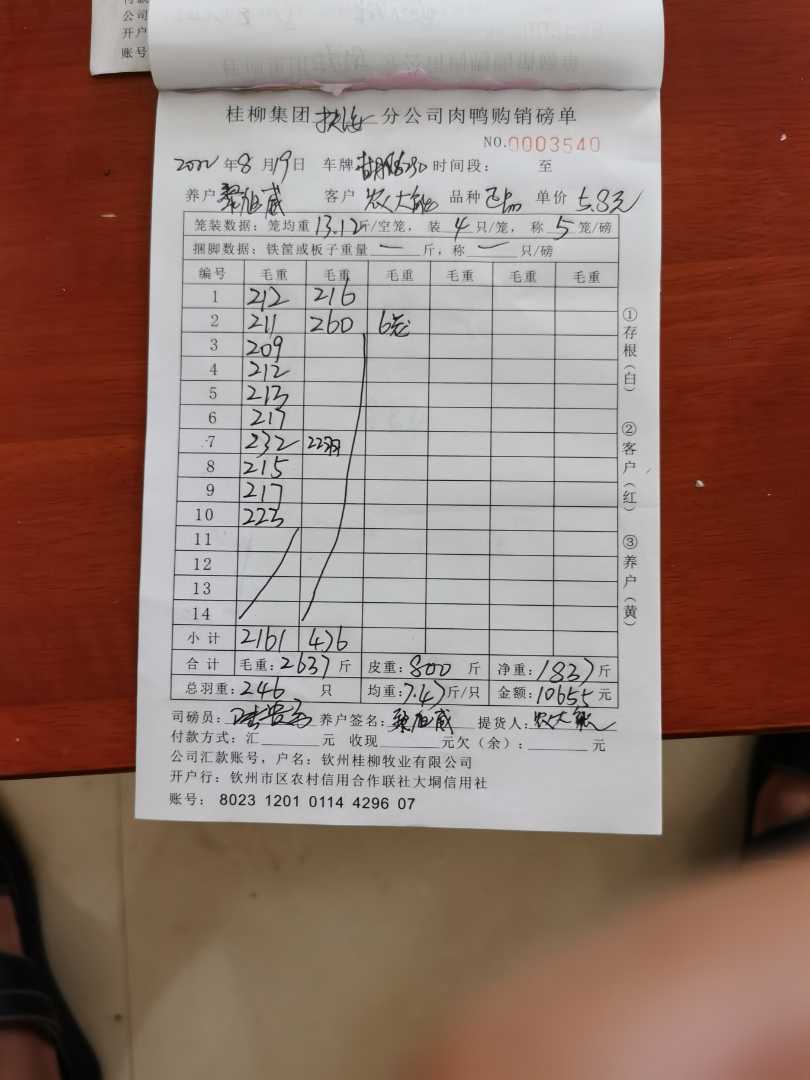 公司
开户
账号
桂柳集团 分公司肉鸭购销磅单
NO.0003540
2022年8月19日 车牌 时间段： 至
养户 威 客户 农大 品种 正品 单价 5.8元
笼装数据：笼均重13.12斤/空笼，装4只/笼，称5笼/磅
捆脚数据：铁筐或板子重量 一 斤，称 一 只/磅
编号 毛重 毛重 毛重 毛重 毛重 毛重
1 212 216
2 211 260 6笼
3 209
4 212
5 213
6 217
7 232 22羽
8 215
9 217
10 223
11
12
13
14
小计 2161 476
合计 毛重：2637斤 皮重：800斤 净重：1837斤
总羽重：246 只 均重：7.47斤/只 金额：10655元
司磅员： 养户签名： 威 提货人：农大
付款方式：汇______元 收现______元欠（余）：______元
公司汇款账号，户名：钦州桂柳牧业有限公司
开户行：钦州市区农村信用合作联社大垌信用社
账号： 8023 1201 0114 4296 07
①存根（白） ②客户（红） ③养户（黄）